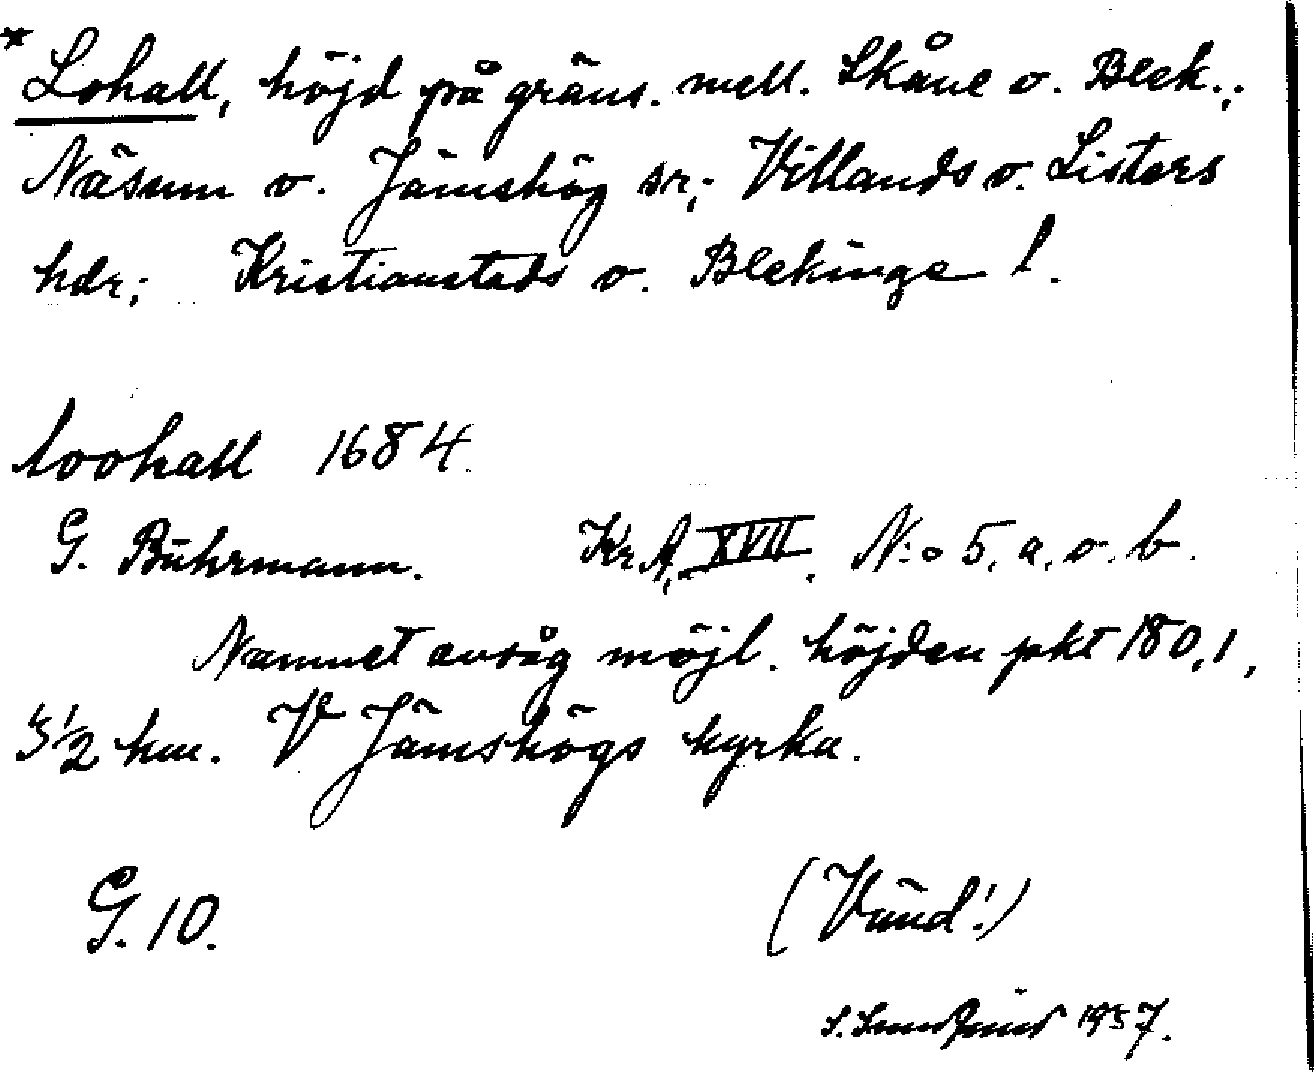 * Lohall, höjd på gräns. mell. Skåne o. Blek.;
Näsum o. Jämshög sr; Villands o. Listers
hdr; Kristianstads o. Blekinge l.
loohall 1684.
G. Buhrmann. Kr.A. XVII. N:o 5, a. o. b.
Namnet avsåg möjl. höjden pkt 180,1,
3 1/2 km. V Jämshögs kyrka.
G. 10. (Vänd!)
S. 1957.